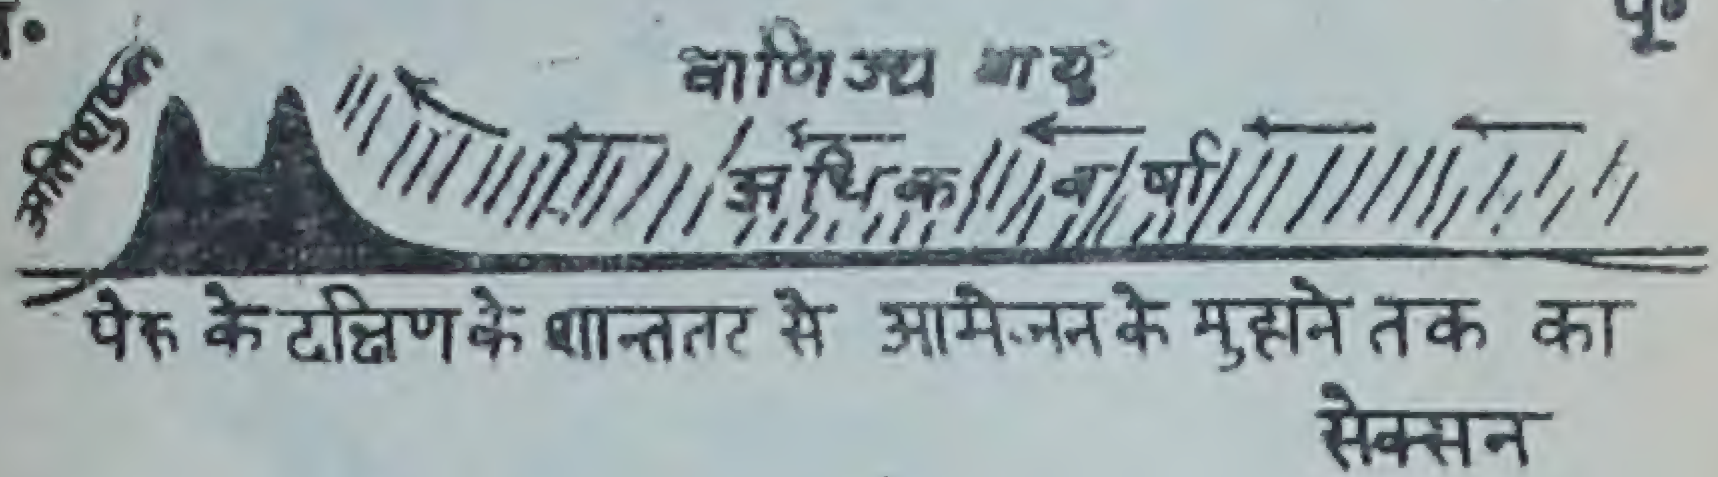 पू॰
अतिशुष्क
वाणिज्य वायु
अधिक वर्षा
पेरू के दक्षिण के शान्ततट से आमेजन के मुहाने तक का
सेक्सन